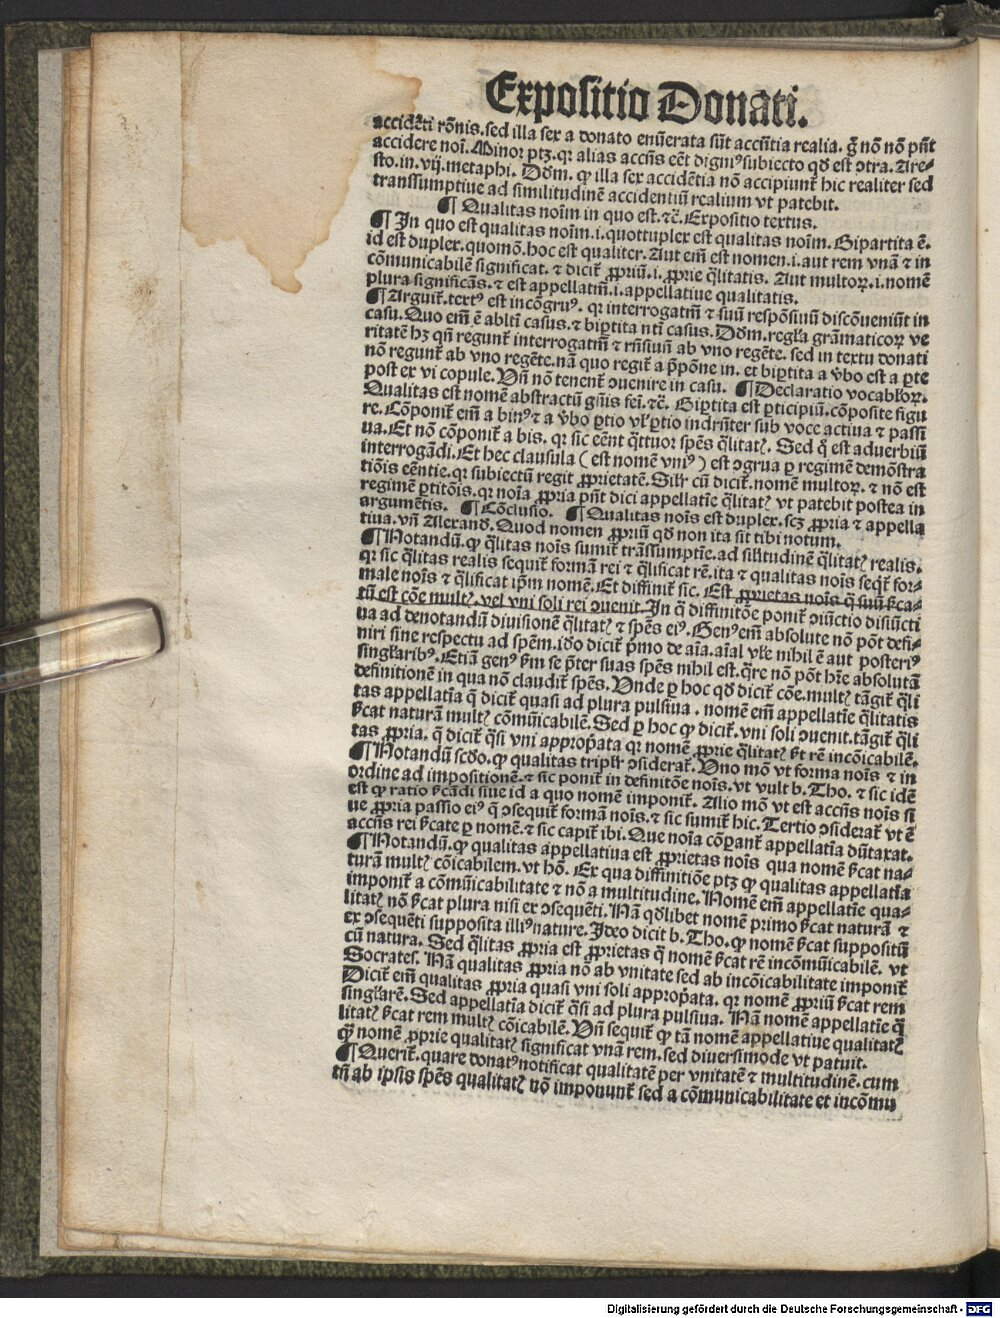 Expositio Donati.
accidēti rōnis.sed illa sex a donato enūerata sūt accn̄tia realia. g̊ nō nō pn̄t
accidere noī. Minor ptꝫ.qꝛ alias accn̄s eēt digniꝰ subiecto qđ est ↄtra. Are-
sto.in.vij.metaphi. Dōm. ꝙ illa sex accidētia nō accipiunť hic realiter sed
transsumptiue ad similitudinē accidentiū realium vt patebit.
¶ Qualitas noīm in quo est.⁊č. Expositio textus.
¶ In quo est qualitas noīm.i.quottuplex est qualitas noīm. Bipartita ē.
id est duplex.quomō.hoc est qualiter. Aut em̄ est nomen.i.aut rem vnā ⁊ in
cōmunicabilē significat. ⁊ dicit̃ ꝓpriū.i.ꝓprie q̄litatis. Aut multoꝝ.i.nomē
plura significās.⁊ est appellatiū.i.appellatiue qualitatis.
¶ Arguit̃.textꝰ est incōgruꝰ. qꝛ interrogatiū ⁊ suū respōsiuū discōueniūt in
casu. Quo em̄ ē abltī casus.⁊ biꝑtita ntī casus. Dōm.regl̃a grāmaticoꝝ ve
ritatē hꝫ qn̄ regunt̃ interrogatiū ⁊ rn̄siuū ab vno regēte. sed in textu donati
nō regunt̃ ab vno regēte.nā quo regit̃ a p̄pōne in. et biꝑtita a v̄bo est a ꝑte
post ex vi copule. Vn̄ nō tenent̃ ↄuenire in casu. ¶ Declaratio vocabl̃oꝝ.
Qualitas est nomē abstractū gn̄is feī.⁊č. Biꝑtita est ꝑticipiū.cōposite figu
re. Cōponit̃ em̄ a binꝰ ⁊ a v̄bo ꝑtio vl̃ ꝑtio indrn̄ter sub voce actiua ⁊ passi
ua. Et nō cōponit̃ a bis. qꝛ sic eēnt q̄ttuor spēs q̄litatꝭ. Sed q̊ est aduerbiū
interrogādi. Et hec clausula ( est nomē vniꝰ ) est ↄgrua ꝑ regimē demōstra
tiōis eēntie.qꝛ subiectū regit ꝓprietatē. Sil̃r cū dicit̃.nomē multoꝝ. ⁊ nō est
regimē ꝑtitōis.qꝛ noīa ꝓpria pn̄t dici appellatīe q̄litatꝭ vt patebit postea in
argumētis. ¶ Cōclusio. ¶ Qualitas noīs est duplex.scꝫ ꝓpria ⁊ appella
tiua.vn̄ Alexand̃. Quod nomen ꝓpriū qđ non ita sit tibi notum.
¶ Notandū. ꝙ q̄litas noīs sumit̃ trāssumptīe.ad silitudinē q̄litatꝭ realis.
qꝛ sic q̄litas realis sequit̃ formā rei ⁊ q̄lificat rē.ita ⁊ qualitas noīs seqt̃ for-
male noīs ⁊ q̄lificat ip̄m nomē. Et diffinit̃ sic. Est ꝓprietas noīs q̄ suū ẜca-
tū est cōe multꝭ.vel vni soli rei ↄuenit. In q̄ diffinitōe ponit̃ ↄiūctio disiūcti
ua ad denotandū diuisionē q̄litatꝭ ⁊ spēs eiꝰ. Genꝰ em̄ absolute nō pōt defi-
niri sine respectu ad spēm.iđo dicit̃ p̄mo de aīa.aīal vl̃e nihil ē aut posteriꝰ
singl̃aribꝰ. Etiā genꝰ ẜm se p̄ter suas spēs nihil est.q̄re nō pōt hr̄e absolutā
definitionē in qua nō claudit̃ spēs. Vnde ꝑ hoc qđ dicit̃ cōe.multꝭ tāgit̃ q̄li
tas appellatīa q̄ dicit̃ quasi ad plura pulsiua. nomē em̄ appellatīe q̄litatis
ẜcat naturā multꝭ cōmūicabilē. Sed ꝑ hoc ꝙ dicit̃.vni soli ↄuenit.tāgit̃ q̄li
tas ꝓpria. q̄ dicit̃ q̄si vni appropͥata qꝛ nomē ꝓprie q̄litatꝭ ẜt rē incōicabilē.
¶ Notandū scđo.ꝙ qualitas tripl̃r ↄsiderat̃. Vno mō vt forma noīs ⁊ in
ordine ad impositionē.⁊ sic ponit̃ in definitōe noīs.vt vult b. Tho. ⁊ sic idē
est ꝙ ratio ẜcādi siue id a quo nomē imponit̃. Alio mō vt est accn̄s noīs si
ue ꝓpria passio eiꝰ q̄ ↄsequit̃ formā noīs.⁊ sic sumit̃ hic. Tertio ↄsiderat̃ vt ē
accn̄s rei ẜcate ꝑ nomē.⁊ sic capit̃ ibi. Que noīa cōꝑant̃ appellatīa dūtaxat.
¶ Notandū.ꝙ qualitas appellatiua est ꝓprietas noīs qua nomē ẜcat na-
turā multꝭ cōicabilem.vt hō. Ex qua diffinitiōe ptꝫ ꝙ qualitas appellatīa
imponit̃ a cōmūicabilitate ⁊ nō a multitudine. Nomē em̄ appellatīe qua-
litatꝭ nō ẜcat plura nisi ex ↄsequēti. Nā qđlibet nomē primo ẜcat naturā ⁊
ex ↄsequēti supposita illiꝰ nature. Ideo dicit b. Tho.ꝙ nomē ẜcat suppositū
cū natura. Sed q̄litas ꝓpria est ꝓprietas q̄ nomē ẜcat rē incōmūicabilē. vt
Socrates. Nā qualitas ꝓpria nō ab vnitate sed ab incōicabilitate imponit̃
Dicit̃ em̄ qualitas ꝓpria quasi vni soli appropͥata. qꝛ nomē ꝓpriū ẜcat rem
singl̃arē. Sed appellatīa dicit̃ q̄si ad plura pulsiua. Nā nomē appellatīe q̄
litatꝭ ẜcat rem multꝭ cōicabilē. Vn̄ sequit̃ ꝙ tā nomē appellatiue qualitatꝭ
q̄ꝫ nomē ꝓprie qualitatꝭ significat vnā rem.sed diuersimode vt patuit.
¶ Querit̃.quare donatꝰ notificat qualitatē per vnitatē ⁊ multitudinē.cum
tn̄ ab ipsis spēs qualitatꝭ nō imponunt̃ sed a cōmunicabilitate et incōmu
Digitalisierung gefördert durch die Deutsche Forschungsgemeinschaft - DFG